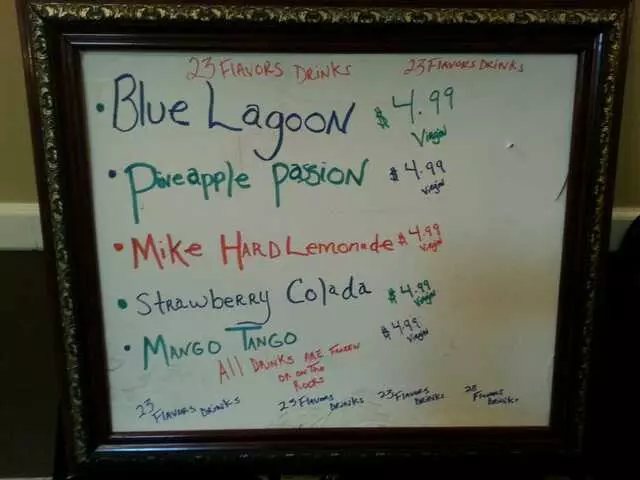 23 FlAVORS DRiNKS 23 FlAVORS DRiNKS
• BLUE LAGOON $4.99 Virgin
• Pineapple Passion $4.99 Virgin
• Mike HARD Lemonade $4.99 Virgin
• Strawberry Colada $4.99 Virgin
• MANGO TANGO $4.99 Virgin
All DRiNKS ARE FROZEN
OR ON The
ROCKS
23 Flavors Drinks 23 Flavors Drinks 23 Flavors Drinks 23 Flavors Drinks